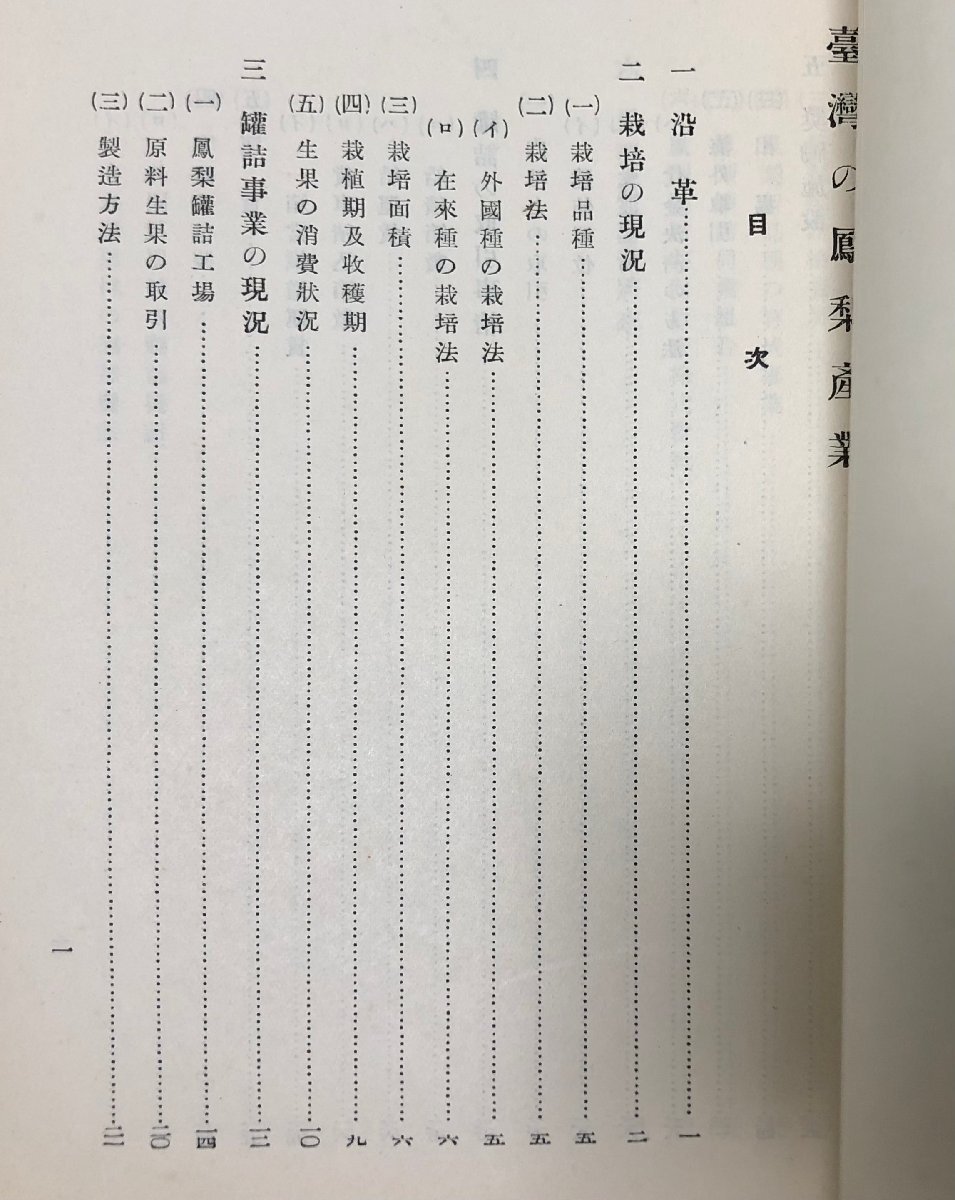 臺灣の鳳梨產業
目次
一 沿革……一
二 栽培の現況……二
(一) 栽培品種……五
(二) 栽培法……五
(イ) 外國種の栽培法……五
(ロ) 在來種の栽培法……六
(三) 栽培面積……六
(四) 栽植期及收穫期……九
(五) 生果の消費狀況……一〇
三 罐詰事業の現況……一二
(一) 鳳梨罐詰工場……一四
(二) 原料生果の取引……二〇
(三) 製造方法……二二
一